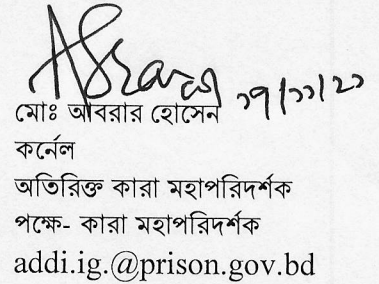 ১৭/১১/২১
মোঃ আবরার হোসেন
কর্নেল
অতিরিক্ত কারা মহাপরিদর্শক
পক্ষে- কারা মহাপরিদর্শক
addi.ig.@prison.gov.bd